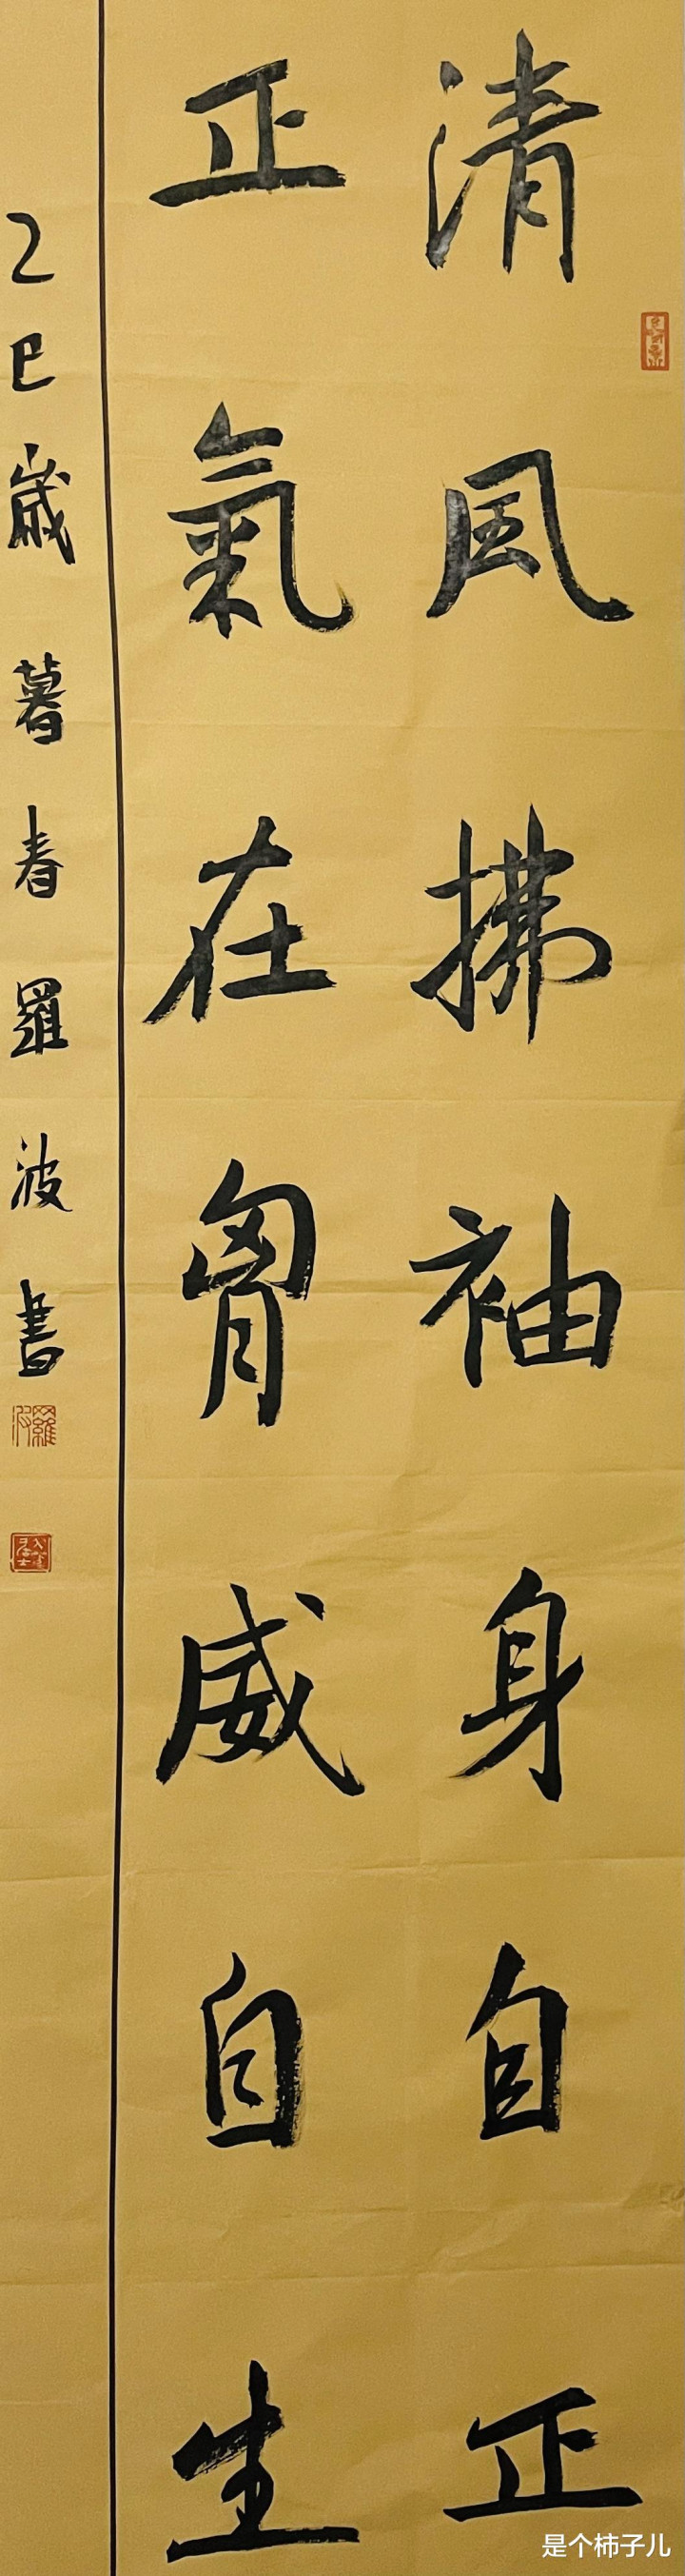 清風拂袖身自正
正氣在胷威自生
乙巳歲暮春羅波書
羅波
是个柿子儿